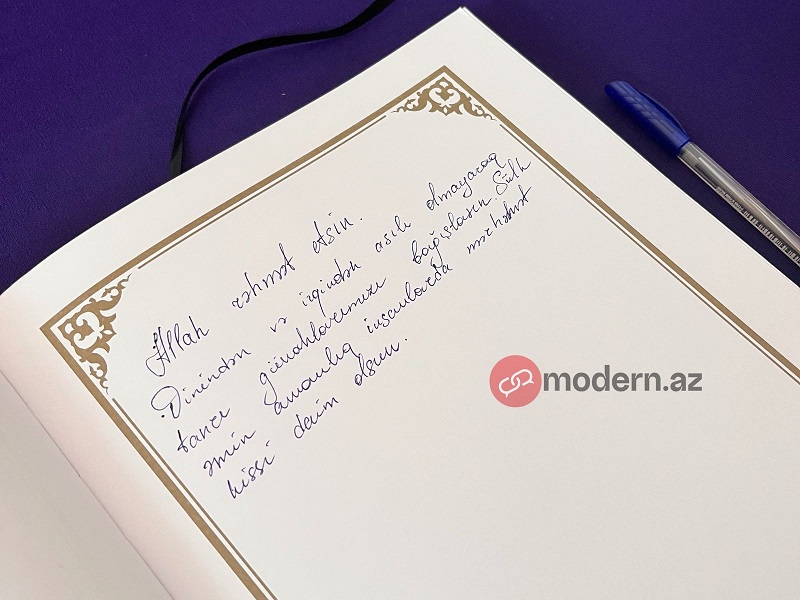 Allah rəhmət etsin.
Dinindən və irqindən asılı olmayaraq
tanrı günahlarımızı bağışlasın. Sülh
əmin amanlıq insanlarda mərhəmət
hissi daim olsun.
modern.az